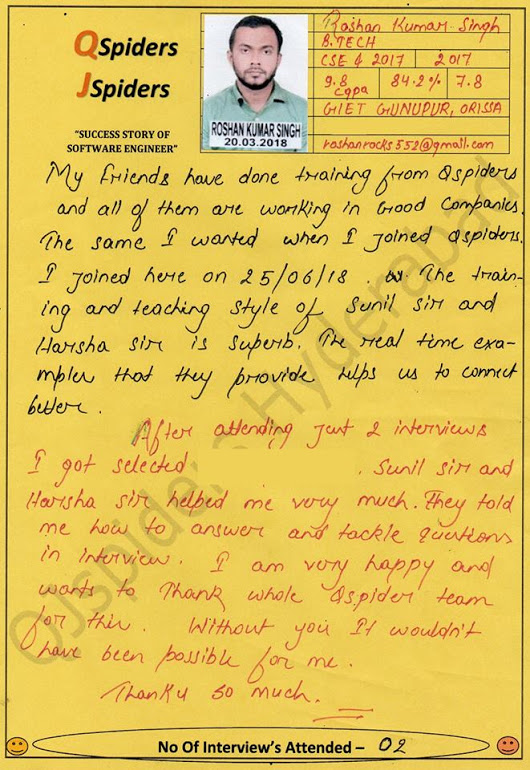 QSpiders
JSpiders
"SUCCESS STORY OF
SOFTWARE ENGINEER"
ROSHAN KUMAR SINGH
20.03.2018
Roshan Kumar Singh
B.TECH
CSE & 2017 2017
9.8 cgpa 84.2% 7.8
GIET GUNUPUR, ORISSA
roshanrocks552@gmail.com
My friends have done training from Qspiders
and all of them are working in Good Companies.
The same I wanted when I joined Qspiders.
I joined here on 25/06/18 The train-
ing and teaching style of Sunil sir and
Harsha sir is superb. The real time exa-
mples that they provide helps us to connect
better.
After attending just 2 interviews
I got selected . Sunil sir and
Harsha sir helped me very much. They told
me how to answer and tackle questions
in interview. I am very happy and
wants to Thank whole Qspider team
for this. Without you It wouldn't
have been possible for me.
ThankU so much.
No Of Interview's Attended – 02
QJspiders Hyderabad